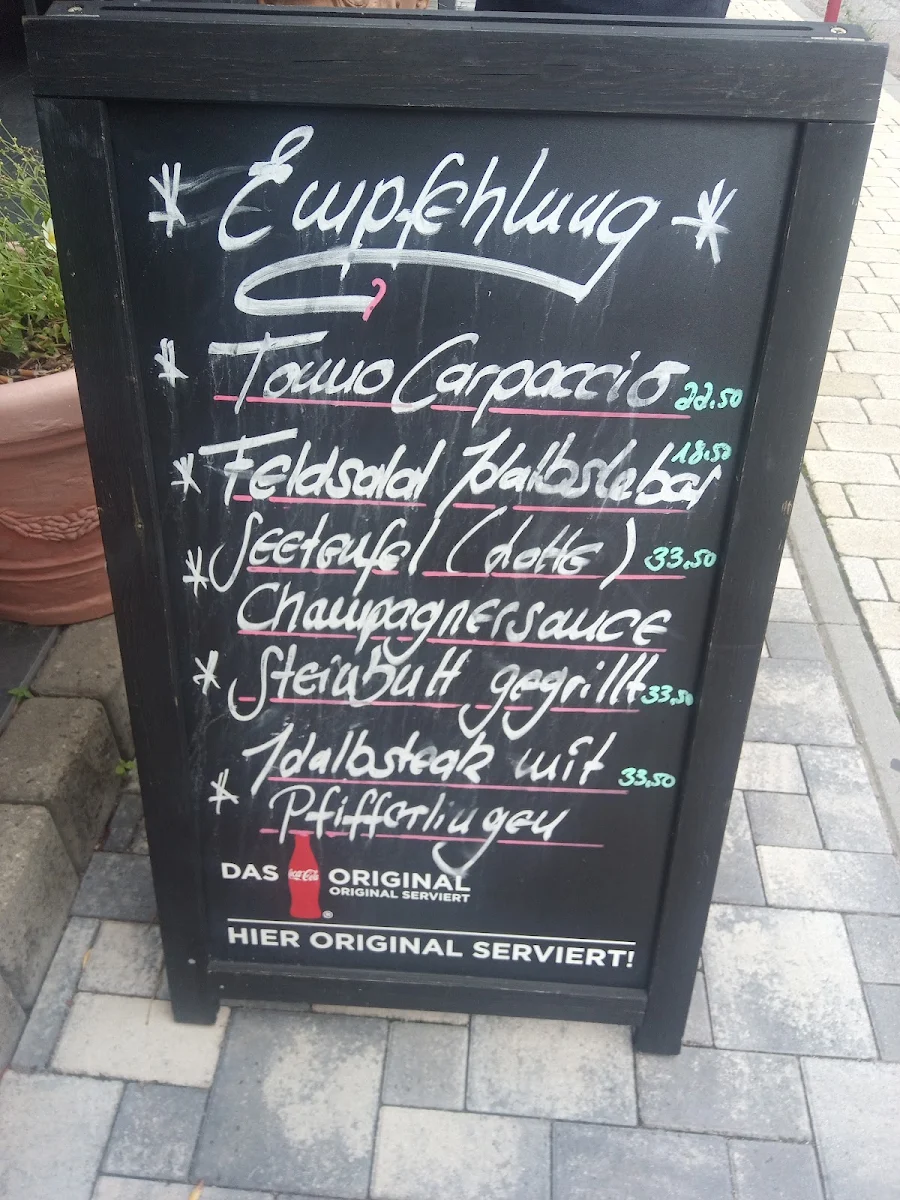 * Empfehlung *
* Tonno Carpaccio 22.50
* Feldsalad Kalbsleber 18.50
* Seeteufel (Lotte) 33.50
Champagnersauce
* Steinbutt gegrillt 33.50
Kalbsteak mit 33.50
* Pfifferlingen
DAS Coca-Cola ® ORIGINAL
ORIGINAL SERVIERT
HIER ORIGINAL SERVIERT!